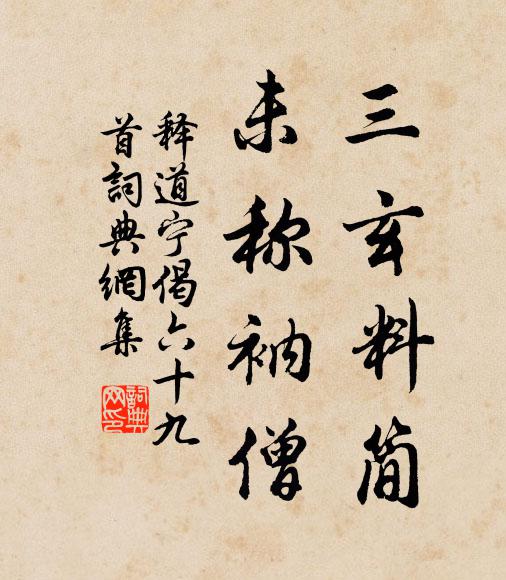 三玄料简
未称衲僧
释道宁偈六十九
首詞典網集
詞典
网印